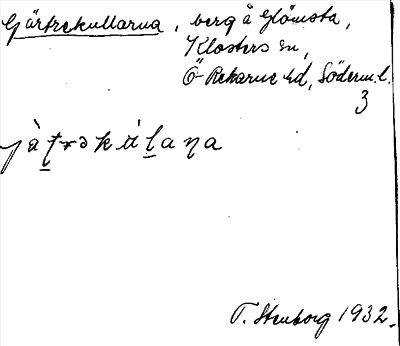 Gärtrekullarna, berg å Glömsta,
Klosters sn,
Ö-Rekarne hd, Söderm. l.
3
jà̀t̠rəkʉ́l̠aɳa
T. Stenborg 1932.